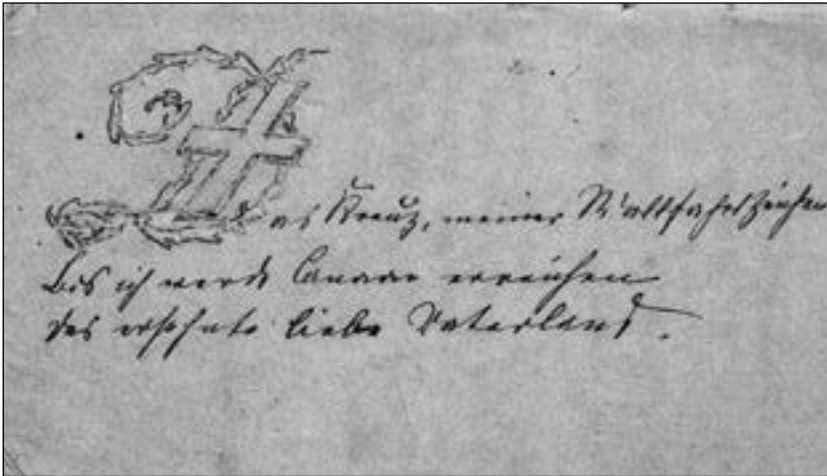 Das Kreuz, meiner Wallfahrt Zeichen
bis ich werde Canaan erreichen
das ersehnte liebe Vaterland.